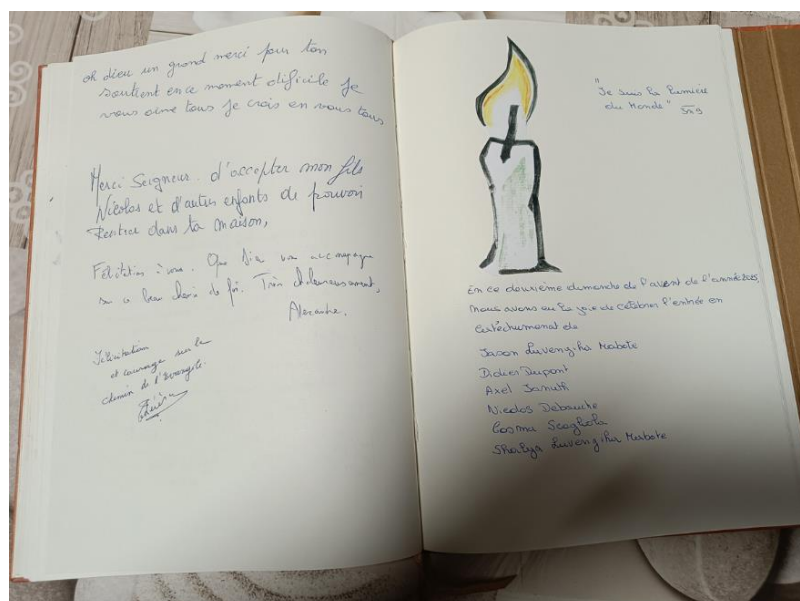 oh dieu un grand merci pour ton
soutient en ce moment dificile je
vous aime tous je crois en vous tous
Merci Seigneur d'accepter mon fils
Nicolas et d'autres enfants de pouvoir
Rentrer dans ta maison,
Félicitations à vous. Que Dieu vous accompagne
sur ce beau chemin de foi. Très chaleureusement,
Alexandre.
Félicitation
et courage sur le
chemin de l'Evangile.
"Je suis la lumière
du Monde" Jn 9
En ce deuxième dimanche de l'avent de l'année 2025,
nous avons eu la joie de célébrer l'entrée en
catéchuménat de
Jason Luvengika Mabete
Didier Dupont
Axel
Nicolas Debauche
Cosma
Luvengika Mabete